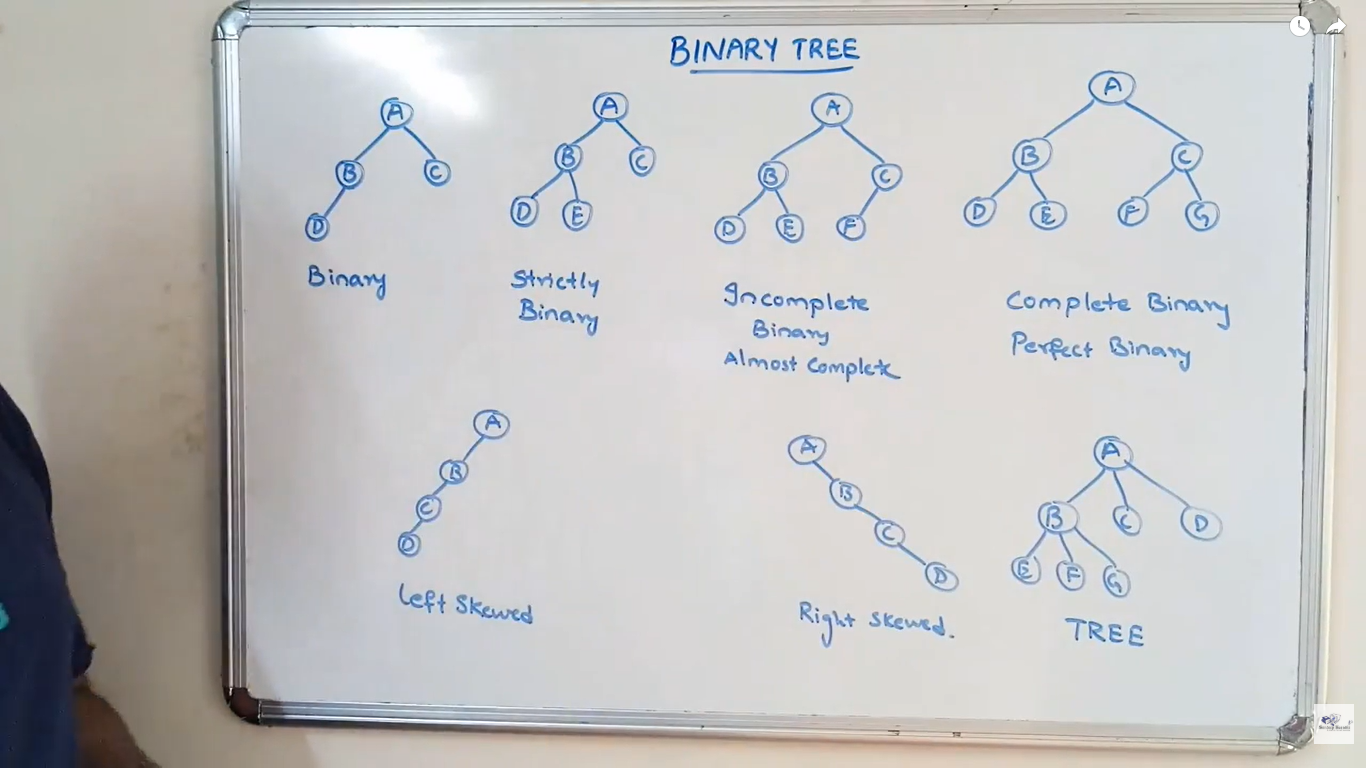 BINARY TREE
A
B C
D
Binary
A
B C
D E
Strictly
Binary
A
B C
D E F
Incomplete
Binary
Almost Complete
A
B C
D E F G
Complete Binary
Perfect Binary
A
B
C
D
Left Skewed
A
B
C
D
Right Skewed.
A
B C D
E F G
TREE